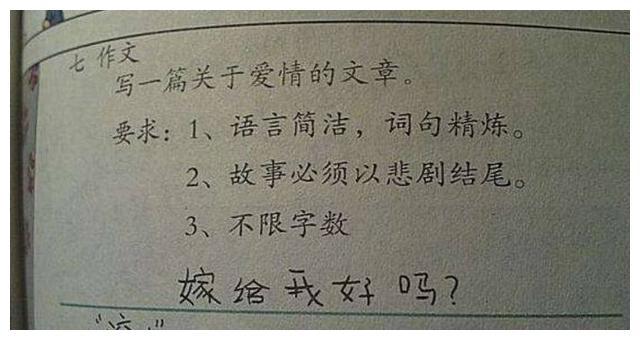 七 作文
写一篇关于爱情的文章。
要求：1、语言简洁，词句精炼。
2、故事必须以悲剧结尾。
3、不限字数
嫁给我好吗？